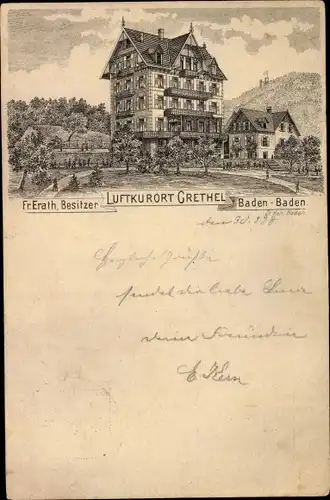 Fr. Erath, Besitzer
LUFTKURORT GRETHEL
Baden-Baden.
den 30.
Herzliche Grüße
sendet die liebe
deine Freundin
E Kern